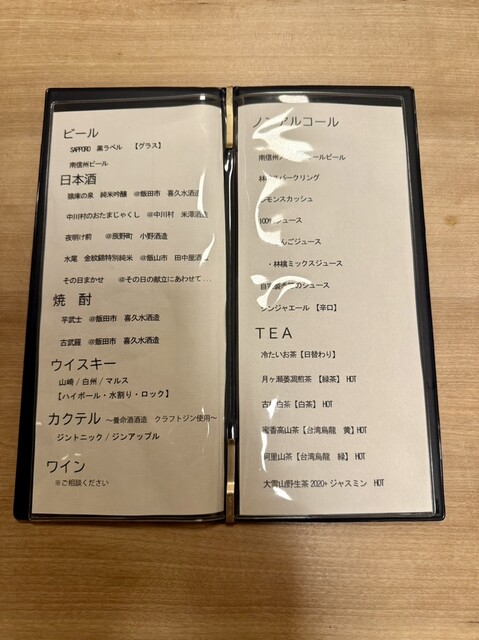 ビール
SAPPORO 黒ラベル 【グラス】
南信州ビール
日本酒
猿庫の泉 純米吟醸 @飯田市 喜久水酒造
中川村のおたまじゃくし @中川村 米澤酒造
夜明け前 @辰野町 小野酒造
水尾 金紋錦特別純米 @飯山市 田中屋酒
その日まかせ @その日の献立にあわせて...
焼酎
芋武士 @飯田市 喜久水酒造
古武羅 @飯田市 喜久水酒造
ウイスキー
山崎/白州/マルス
【ハイボール・水割り・ロック】
カクテル ~養命酒酒造 クラフトジン使用~
ジントニック/ジンアップル
ワイン
※ご相談ください
ノンアルコール
南信州 ールビール
パークリング
モンスカッシュ
100% ジュース
んごジュース
・林檎ミックスジュース
のジュース
ジンジャエール【辛口】
TEA
冷たいお茶【日替わり】
月ヶ瀬萎凋煎茶 【緑茶】 HOT
白茶【白茶】 HOT
蜜香高山茶【台湾烏龍 黄】HOT
阿里山茶【台湾烏龍 緑】 HOT
大雪山野生茶2020+ジャスミン HOT